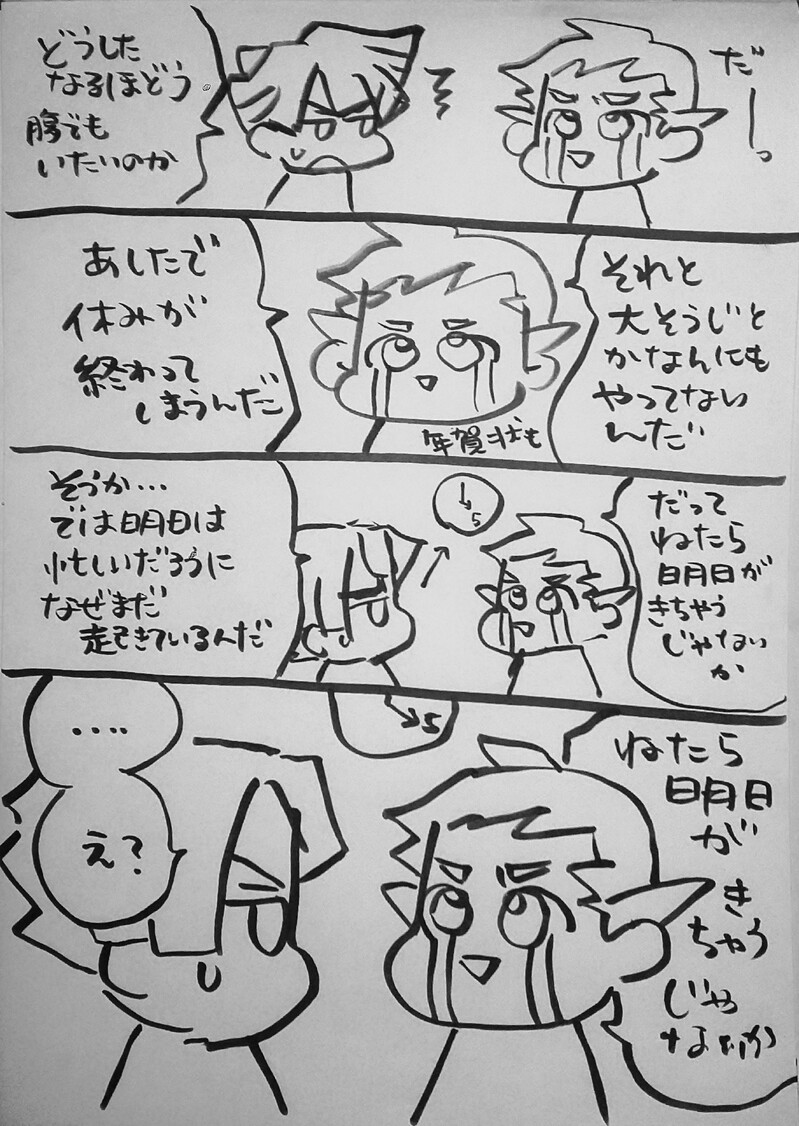 だーっ
どうした
なるほどう。
腸でも
いたいのか
それと
大そうじと
かなんにも
やってない
んだ
年賀状も
あしたで
休みが
終わって
しまうんだ
だって
ねたら
明日が
きちゃう
じゃない
か
5
そうか…
では明日は
忙しいだろうに
なぜまだ
起きているんだ
ねたら
明日
が
き
ちゃう
じゃ
ないか
5
‥‥
え?